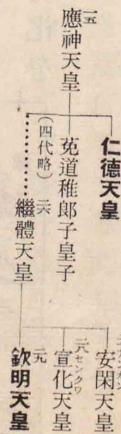 一五
應神天皇
仁德天皇
菟道稚郎子皇子
(四代略)
二六
繼體天皇
安閑天皇
二八
センクワ
宣化天皇
二九
欽明天皇